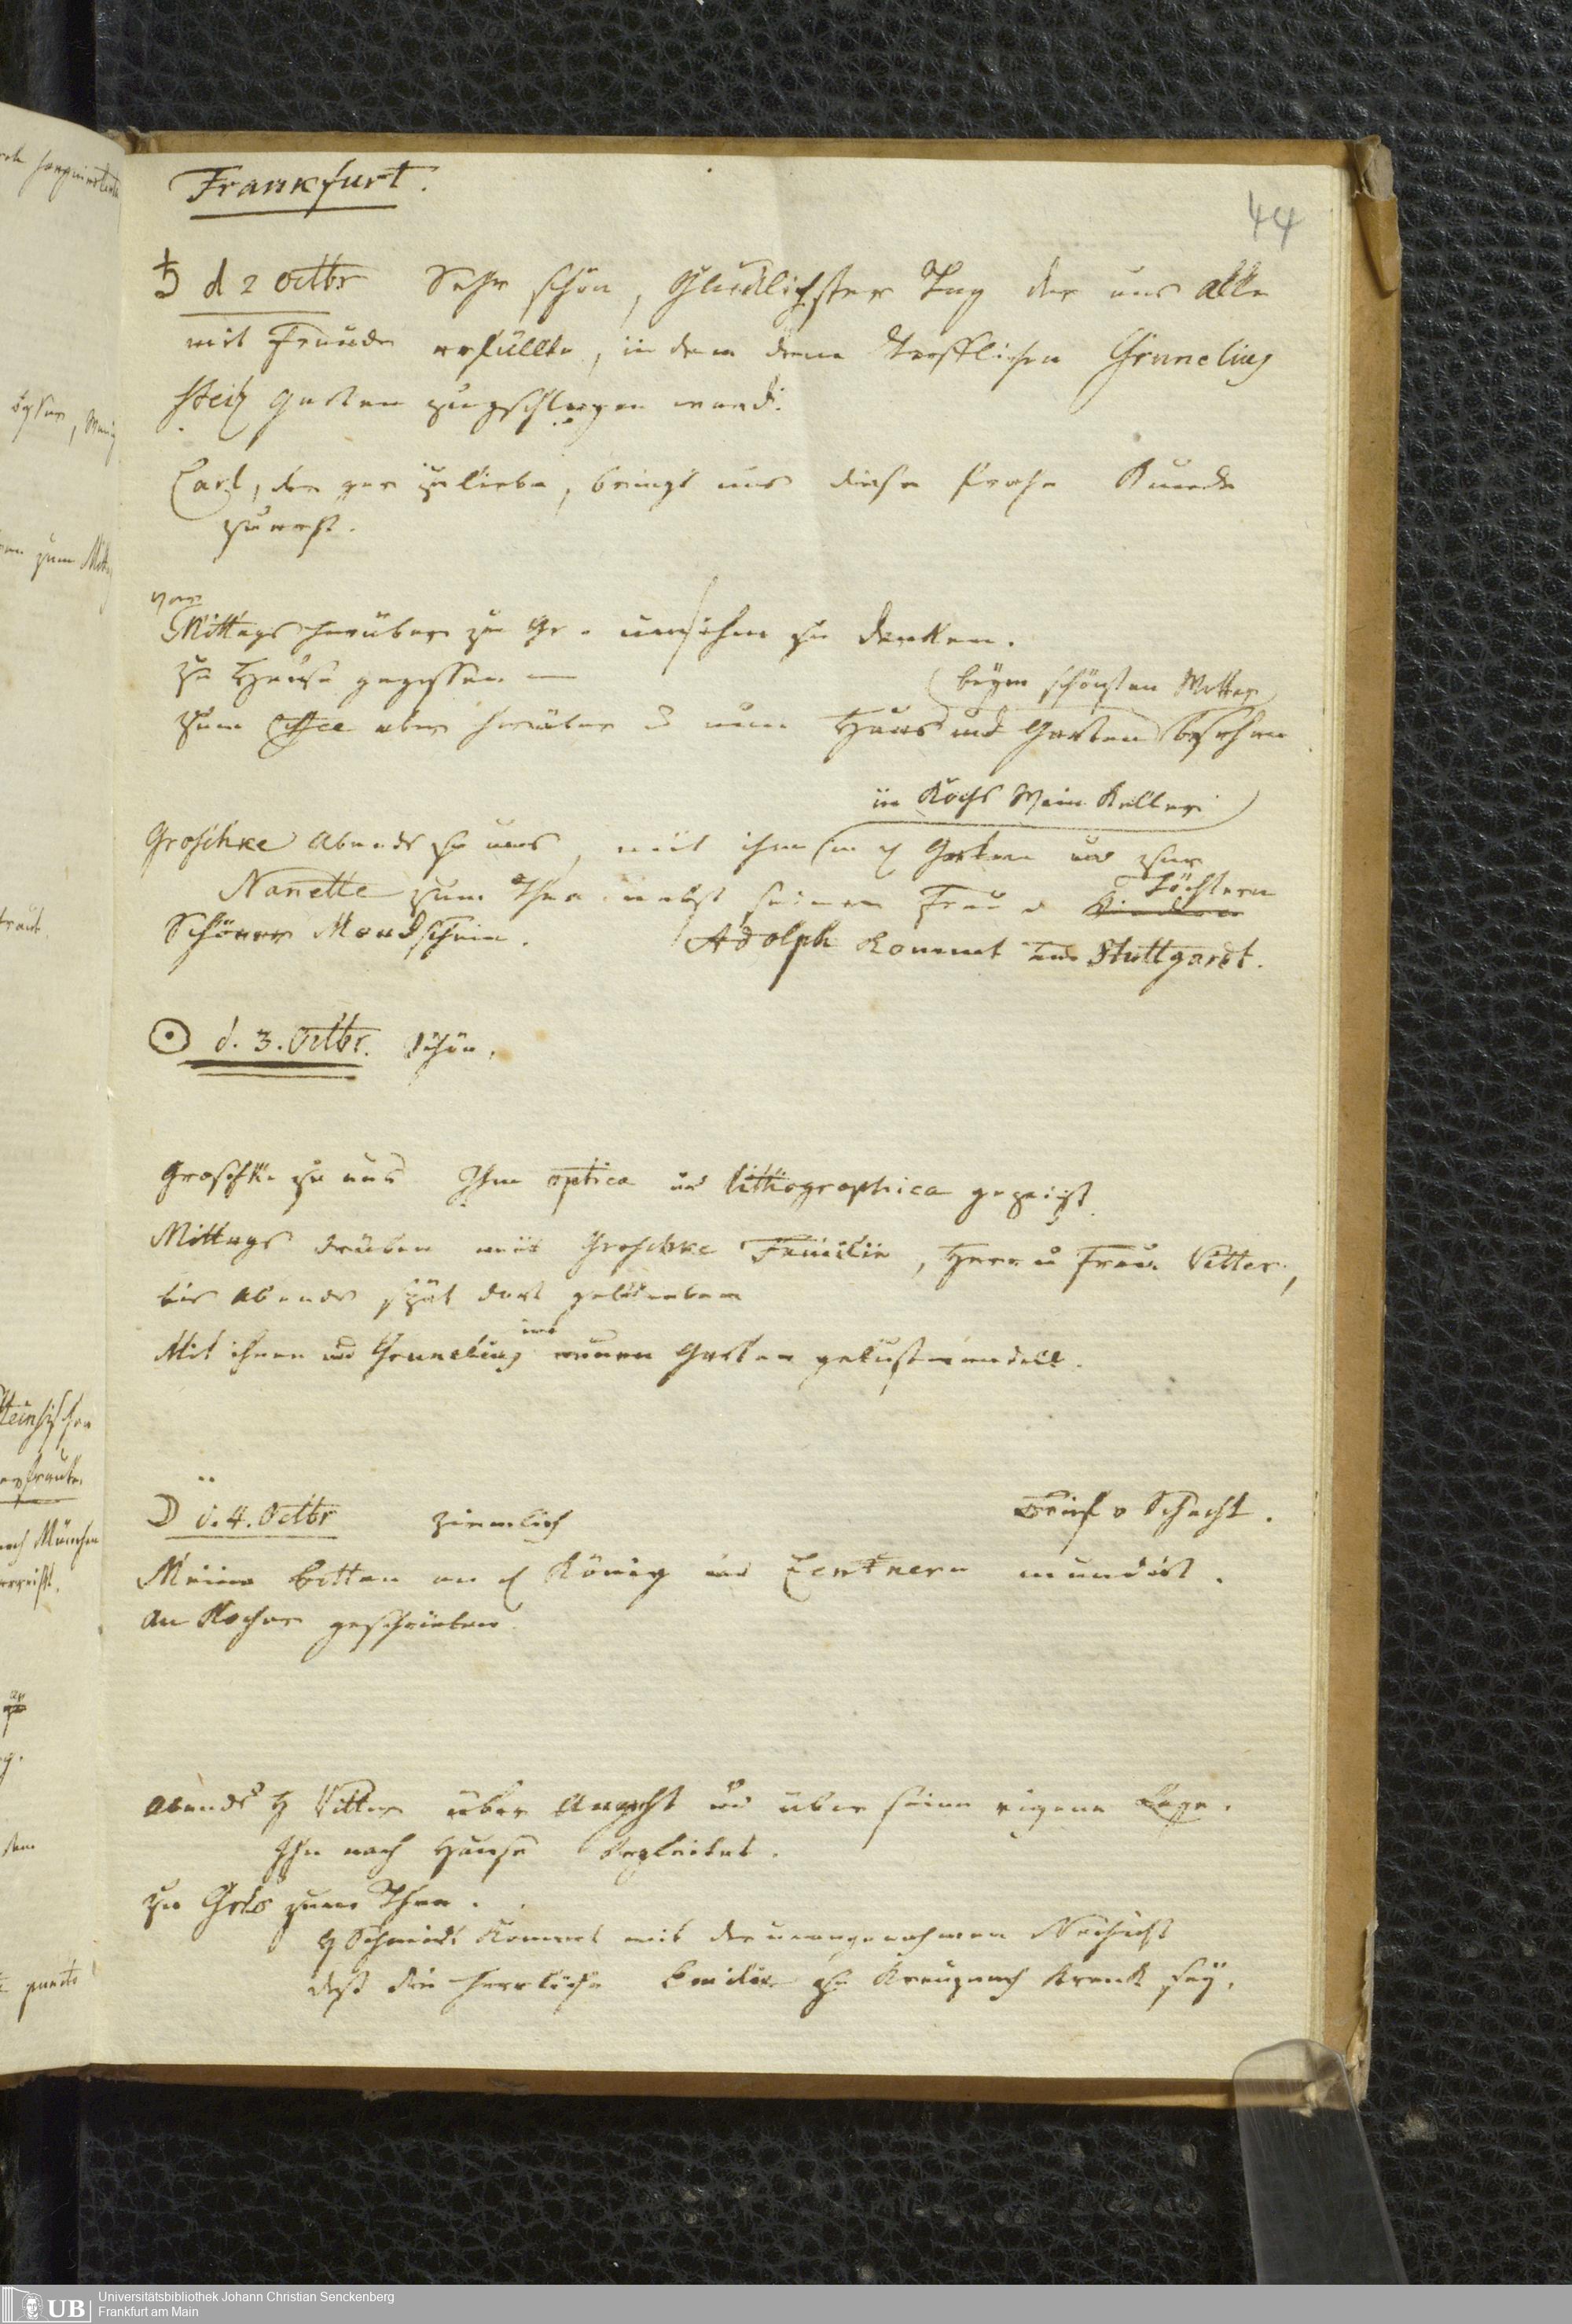 Frankfurt.
44
♄ d 2 Octbr Sehr schön, Glücklichster Tag der uns alle
mit Freude erfüllte, in dem dem trefflichen Grunelius
Steitz Garten zugschlagen ward.
Carl, der gar zu liebe, bringt uns diese frohe Kunde
zuerst.
vor
Mittags herüber zu Gr. um ihm zu danken.
zu Hause gegessen —
(beym schönsten Wetter)
zum Coffee aber herüber u nun Haus und Garten besehen
in Kochs Wein Keller
Groschke Abends zu uns, mit ihm in d Garten und zur
Nanette zum Thee nebst seiner Frau u Kindern Töchtern
Schöner Mondschein. Adolph kommt aus Stuttgardt.
☉ d. 3. Octbr. Schön.
Groschke zu uns Ihm optica und lithographica gezeigt.
Mittags drüben mit Groschke Familie, Herr u Frau Vetter,
bis Abends spät dort geblieben
Mit ihnen und Grunelius im neuen Garten gelustwandelt.
☽ d. 4. Octbr ziemlich Brief v Schacht.
Meine bitten an d König und Zentnern mundirt.
An Kocher geschrieben
Abends H Vetter über Angst und über seine eigene Lage.
Ihn nach Hause begleitet.
zu Grls zum Thee.
H Schmidt kommt mit der unangenehmen Nachricht
daß die herrliche Emilie zu Kreuznach krank sey.
Universitätsbibliothek Johann Christian Senckenberg
Frankfurt am Main
UB